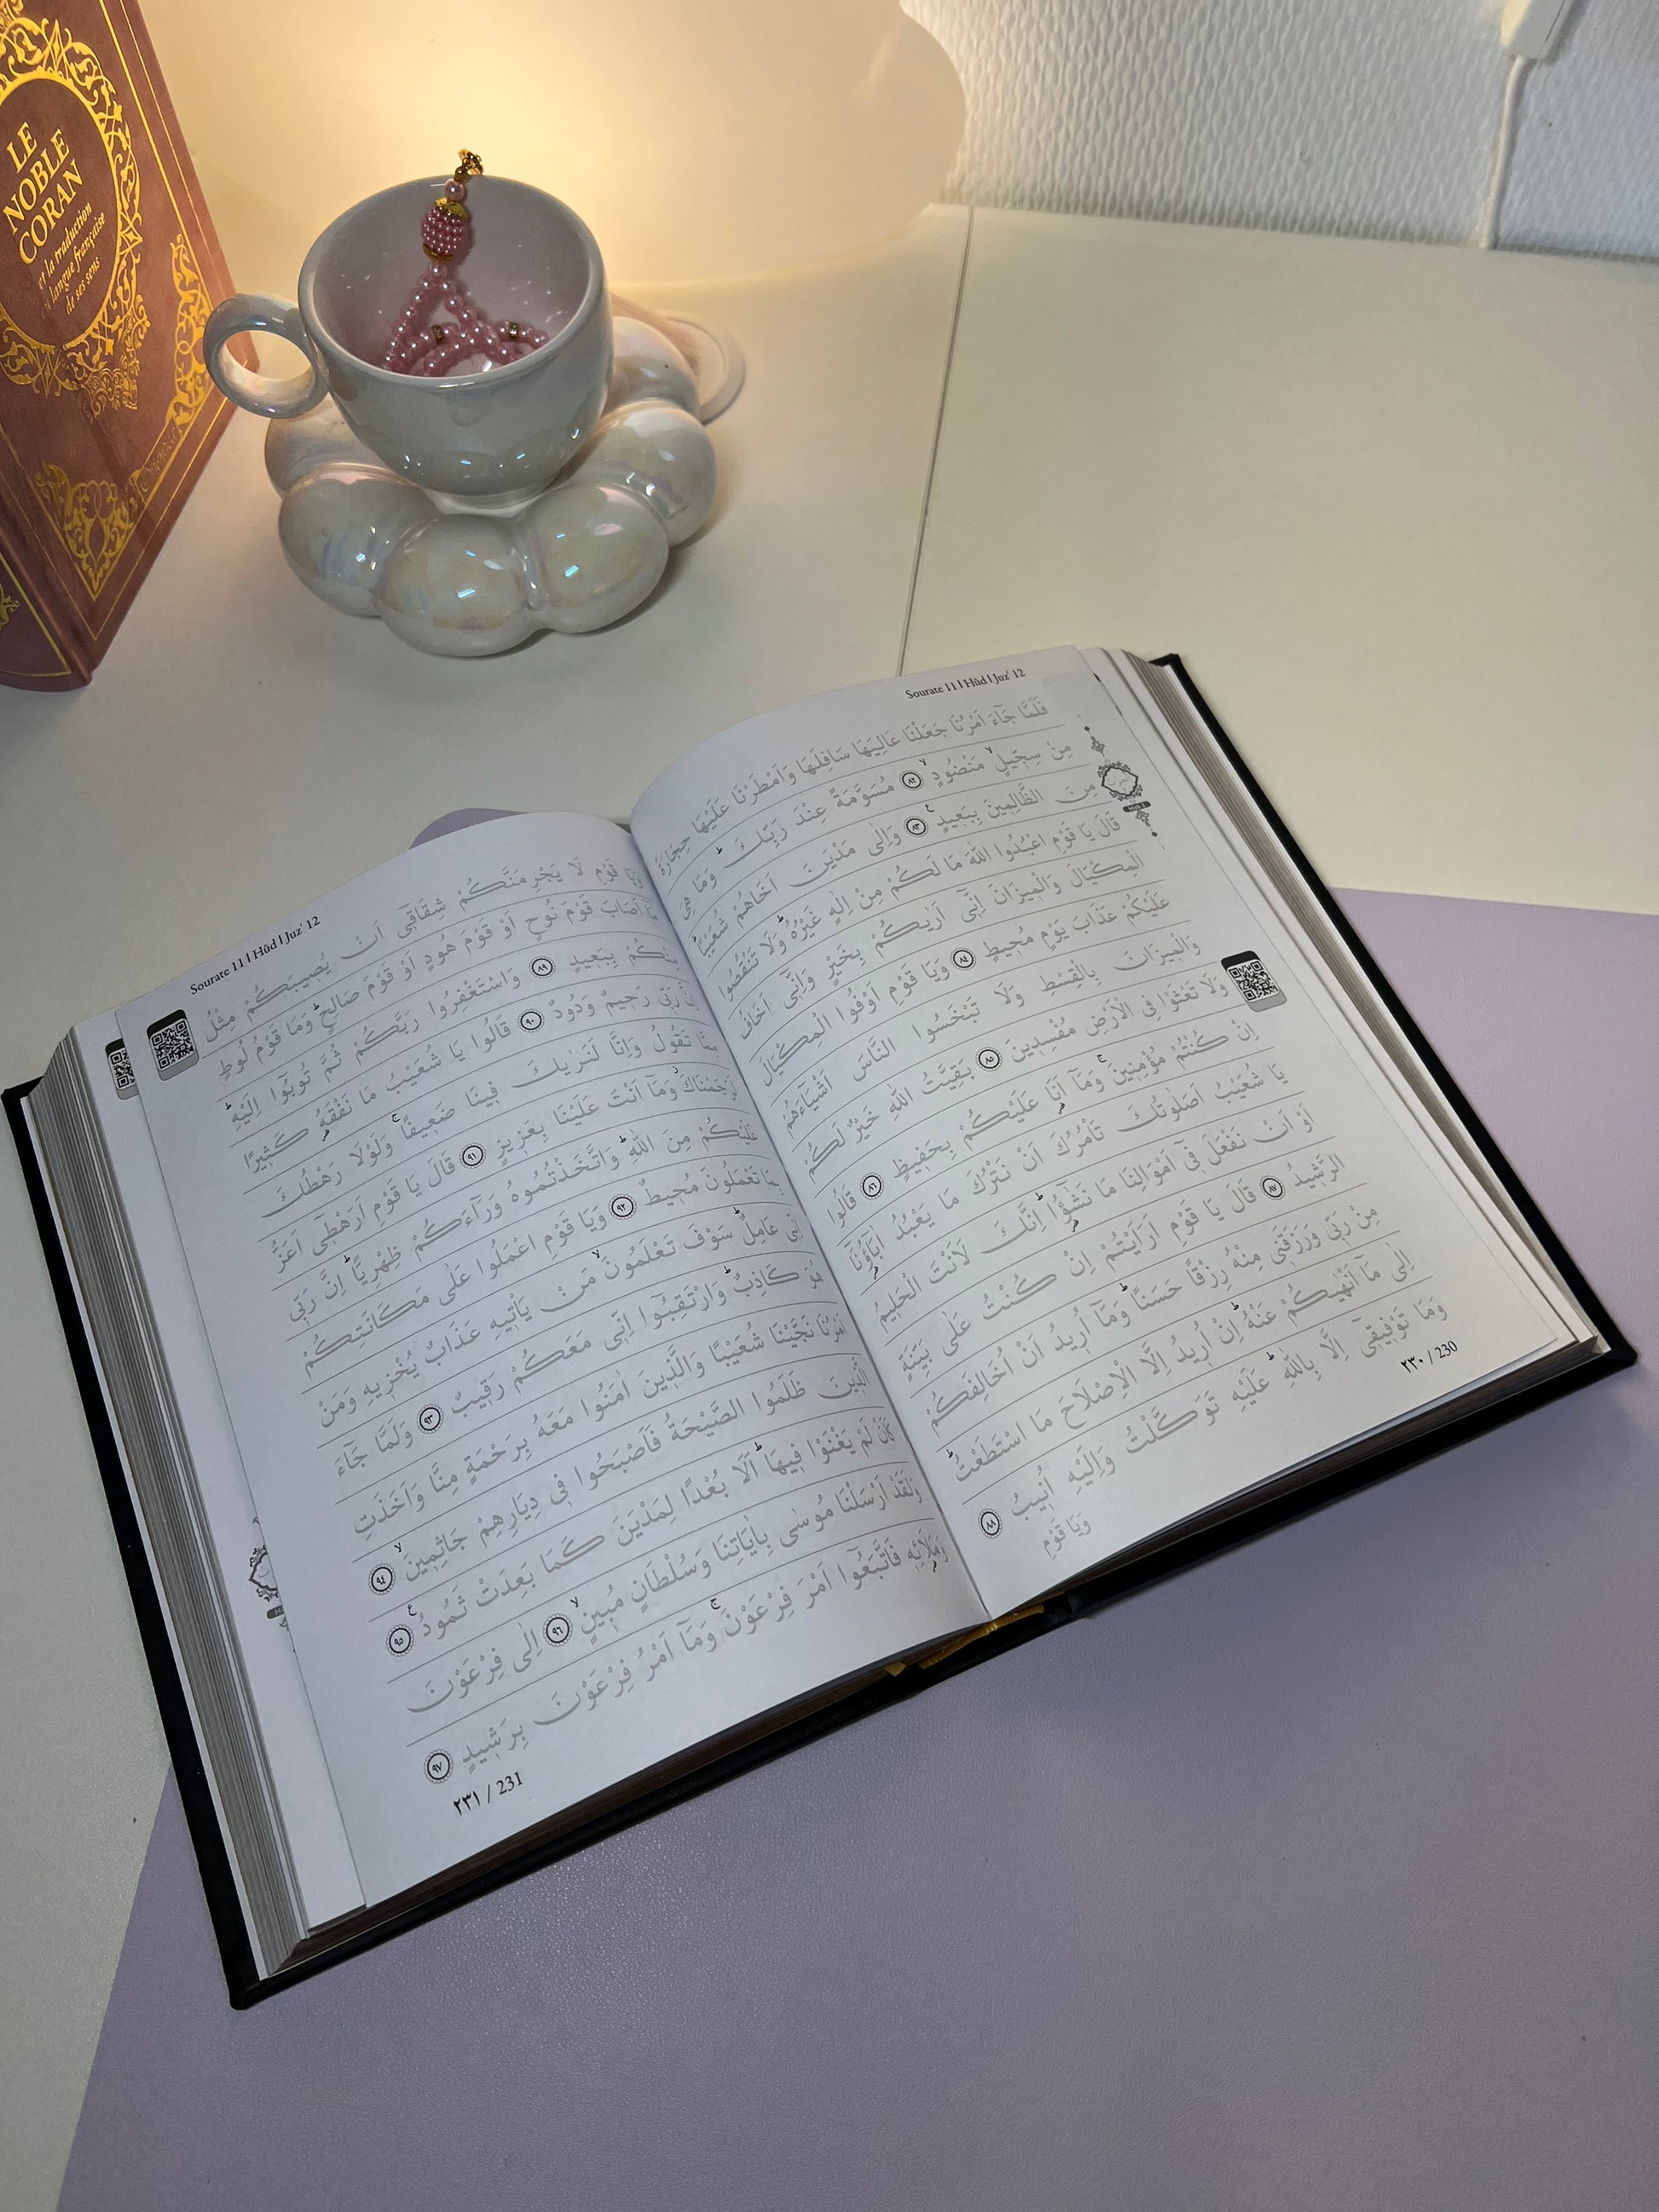 LE
NOBLE
CORAN
et la traduction
langue française
de ses sens
Sourate 11 | Hûd | Juz' 12
فَلَمَّا جَٓاءَ اَمْرُنَا جَعَلْنَا عَالِيَهَا سَافِلَهَا وَاَمْطَرْنَا عَلَيْهَا حِجَارَةً
مِنْ سِجّ۪يلٍ مَنْضُودٍۙ ٨٢ مُسَوَّمَةً عِنْدَ رَبِّكَۜ وَمَا هِيَ
مِنَ الظَّالِم۪ينَ بِبَع۪يدٍ۟ ٨٣ وَاِلٰى مَدْيَنَ اَخَاهُمْ شُعَيْبًاۜ
قَالَ يَا قَوْمِ اعْبُدُوا اللّٰهَ مَا لَكُمْ مِنْ اِلٰهٍ غَيْرُهُۜ وَلَا تَنْقُصُوا
الْمِكْيَالَ وَالْم۪يزَانَ اِنّ۪ٓي اَرٰيكُمْ بِخَيْرٍ وَاِنّ۪ٓي اَخَافُ
عَلَيْكُمْ عَذَابَ يَوْمٍ مُح۪يطٍ ٨٤ وَيَا قَوْمِ اَوْفُوا الْمِكْيَالَ
وَالْم۪يزَانَ بِالْقِسْطِ وَلَا تَبْخَسُوا النَّاسَ اَشْيَٓاءَهُمْ
وَلَا تَعْثَوْا فِي الْاَرْضِ مُفْسِد۪ينَ ٨٥ بَقِيَّتُ اللّٰهِ خَيْرٌ لَكُمْ
اِنْ كُنْتُمْ مُؤْمِن۪ينَۚ وَمَٓا اَنَا۬ عَلَيْكُمْ بِحَف۪يظٍ ٨٦ قَالُوا
يَا شُعَيْبُ اَصَلٰوتُكَ تَأْمُرُكَ اَنْ نَتْرُكَ مَا يَعْبُدُ اٰبَٓاؤُ۬نَٓا
اَوْ اَنْ نَفْعَلَ ف۪ٓي اَمْوَالِنَا مَا نَشٰٓؤُ۬اۜ اِنَّكَ لَاَنْتَ الْحَل۪يمُ
الرَّش۪يدُ ٨٧ قَالَ يَا قَوْمِ اَرَاَيْتُمْ اِنْ كُنْتُ عَلٰى بَيِّنَةٍ
مِنْ رَبّ۪ي وَرَزَقَن۪ي مِنْهُ رِزْقًا حَسَنًاۜ وَمَٓا اُر۪يدُ اَنْ اُخَالِفَكُمْ
اِلٰى مَٓا اَنْهٰيكُمْ عَنْهُۜ اِنْ اُر۪يدُ اِلَّا الْاِصْلَاحَ مَا اسْتَطَعْتُۜ
وَمَا تَوْف۪يق۪ٓي اِلَّا بِاللّٰهِۜ عَلَيْهِ تَوَكَّلْتُ وَاِلَيْهِ اُن۪يبُ ٨٨
وَيَا قَوْمِ
٢٣٠ / 230
Sourate 11 | Hûd | Juz' 12
وَيَا قَوْمِ لَا يَجْرِمَنَّكُمْ شِقَاق۪ٓي اَنْ يُص۪يبَكُمْ مِثْلُ
مَٓا اَصَابَ قَوْمَ نُوحٍ اَوْ قَوْمَ هُودٍ اَوْ قَوْمَ صَالِحٍۜ وَمَا قَوْمُ لُوطٍ
مِنْكُمْ بِبَع۪يدٍ ٨٩ وَاسْتَغْفِرُوا رَبَّكُمْ ثُمَّ تُوبُٓوا اِلَيْهِۜ
اِنَّ رَبّ۪ي رَح۪يمٌ وَدُودٌ ٩٠ قَالُوا يَا شُعَيْبُ مَا نَفْقَهُ كَث۪يرًا
مِمَّا تَقُولُ وَاِنَّا لَنَرٰيكَ ف۪ينَا ضَع۪يفًاۚ وَلَوْلَا رَهْطُكَ
لَرَجَمْنَاكَۘ وَمَٓا اَنْتَ عَلَيْنَا بِعَز۪يزٍ ٩١ قَالَ يَا قَوْمِ اَرَهْط۪ٓي اَعَزُّ
عَلَيْكُمْ مِنَ اللّٰهِۜ وَاتَّخَذْتُمُوهُ وَرَٓاءَكُمْ ظِهْرِيًّاۜ اِنَّ رَبّ۪ي
بِمَا تَعْمَلُونَ مُح۪يطٌ ٩٢ وَيَا قَوْمِ اعْمَلُوا عَلٰى مَكَانَتِكُمْ
اِنّ۪ي عَامِلٌۜ سَوْفَ تَعْلَمُونَۙ مَنْ يَأْت۪يهِ عَذَابٌ يُخْز۪يهِ وَمَنْ
هُوَ كَاذِبٌۜ وَارْتَقِبُٓوا اِنّ۪ي مَعَكُمْ رَق۪يبٌ ٩٣ وَلَمَّا جَٓاءَ
اَمْرُنَا نَجَّيْنَا شُعَيْبًا وَالَّذ۪ينَ اٰمَنُوا مَعَهُ بِرَحْمَةٍ مِنَّا وَاَخَذَتِ
الَّذ۪ينَ ظَلَمُوا الصَّيْحَةُ فَاَصْبَحُوا ف۪ي دِيَارِهِمْ جَاثِم۪ينَۙ ٩٤
كَاَنْ لَمْ يَغْنَوْا ف۪يهَاۜ اَلَا بُعْدًا لِمَدْيَنَ كَمَا بَعِدَتْ ثَمُودُ۟ ٩٥
وَلَقَدْ اَرْسَلْنَا مُوسٰى بِاٰيَاتِنَا وَسُلْطَانٍ مُب۪ينٍۙ ٩٦ اِلٰى فِرْعَوْنَ
وَمَلَا۬ئِه۪ فَاتَّبَعُٓوا اَمْرَ فِرْعَوْنَۚ وَمَٓا اَمْرُ فِرْعَوْنَ بِرَش۪يدٍ ٩٧
٢٣١ / 231